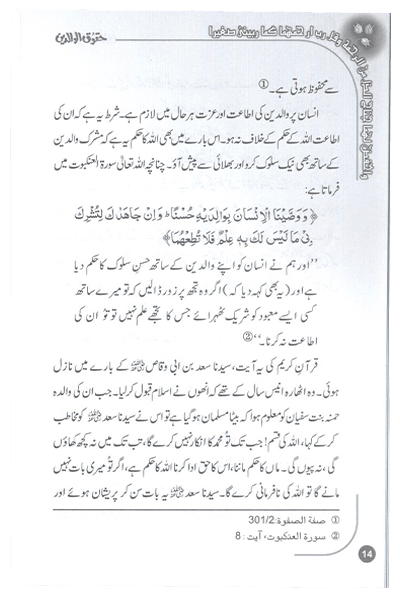 حقوق الوالدین
وقل رب ارحمهما كما ربيني صغيرا
سے محفوظ ہوتی ہے۔①
انسان پر والدین کی اطاعت اور عزت ہر حال میں لازم ہے۔ شرط یہ ہے کہ ان کی
اطاعت اللہ کے حکم کے خلاف نہ ہو۔ اس بارے میں بھی اللہ کا حکم یہ ہے کہ مشرک والدین
کے ساتھ بھی نیک سلوک کرو اور بھلائی سے پیش آؤ۔ چنانچہ اللہ تعالیٰ سورۃ العنکبوت میں
فرماتا ہے:
﴿ وَوَصَّيْنَا الْاِنْسَانَ بِوَالِدَيْهِ حُسْنًا ۖ وَاِنْ جَاهَدٰكَ لِتُشْرِكَ
بِيْ مَا لَيْسَ لَكَ بِهٖ عِلْمٌ فَلَا تُطِعْهُمَا﴾
’’اور ہم نے انسان کو اپنے والدین کے ساتھ حسنِ سلوک کا حکم دیا
ہے اور (یہ بھی کہہ دیا کہ) اگر وہ تجھ پر زور ڈالیں کہ تو میرے ساتھ
کسی ایسے معبود کو شریک ٹھہرائے جس کا تجھے علم نہیں تو تُو ان کی
اطاعت نہ کرنا۔‘‘②
قرآنِ کریم کی یہ آیت، سیدنا سعد بن ابی وقاص ؓ کے بارے میں نازل
ہوئی۔ وہ اٹھارہ انیس سال کے تھے کہ انھوں نے اسلام قبول کر لیا۔ جب ان کی والدہ
حمنہ بنت سفیان کو معلوم ہوا کہ بیٹا مسلمان ہو گیا ہے تو اس نے سیدنا سعد ؓ کو مخاطب
کر کے کہا، اللہ کی قسم! جب تک تُو محمد کا انکار نہیں کرے گا، تب تک میں نہ کچھ کھاؤں
گی، نہ پیوں گی۔ ماں کا حکم ماننا، اس کا حق ادا کرنا اللہ کا حکم ہے، اگر تُو میری بات نہیں
مانے گا تو اللہ کی نافرمانی کرے گا۔ سیدنا سعد ؓ یہ بات سن کر پریشان ہوئے اور
① صفة الصفوة: 301/2
② سورة العنكبوت، آیت: 8
14